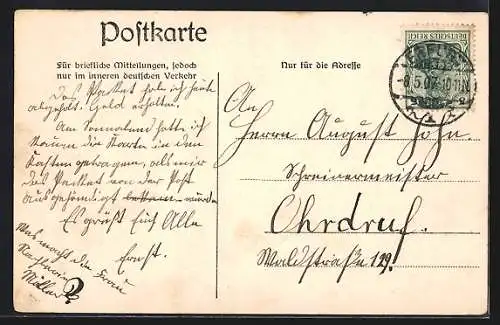 Postkarte
Für briefliche Mitteilungen, jedoch
nur im inneren deutschen Verkehr
Nur für die Adresse
DEUTSCHES REICH
5.07.10-11N
Das Packet habe ich heute
abgeholt. Geld erhalten.
Am Sonnabend hatte ich
kaum die Karten in den
Kasten getragen, als mir
das Packet von der Post
ausgehändigt wurde
Es grüßt Euch Alle
Ernst.
Was macht die Frau
Müller?
An
Herrn August John.
Schreinermeister
Ohrdruf.
Waldstraße 129.